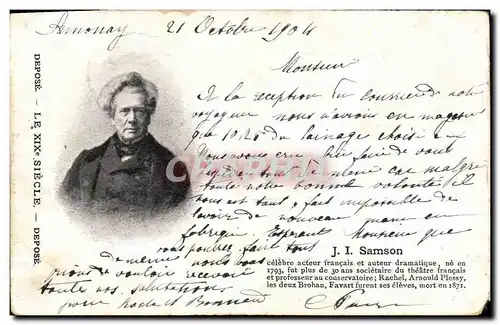 Annonay 21 Octobre 1904
Monsieur
A la reception du commende notre
voyageur nous n'avions en magasin
que 10/20 du lainage choisi
Nous avons cru bien faire de vous
de même car malgré
toute notre bonne volonté il
nous est tout à fait impossible de
de nouveau
fabrique. Esperant Monsieur que
vous pourrez faire tout
de même nous vous
prions de vouloir recevoir
toutes nos salutations
pour
DEPOSÉ. - LE XIXe SIÈCLE. - DEPOSÉ
J. I. Samson
célèbre acteur français et auteur dramatique, né en
1793, fut plus de 30 ans sociétaire du théâtre français
et professeur au conservatoire; Rachel, Arnould Plessy,
les deux Brohan, Favart furent ses élèves, mort en 1871.